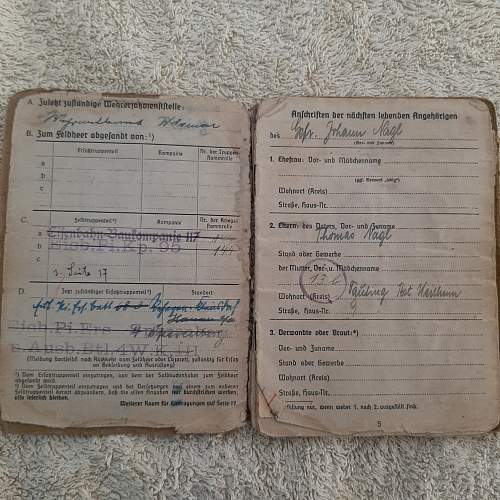 A. Zuletzt zuständige Wehrersatzdienststelle:
B. Zum Feldheer abgesandt von:¹)
Ersatztruppenteil
Kompanie
Nr. der Truppen-
stammrolle
a
b
c
C.
Feldtruppenteil²)
Kompanie
Nr. der Kriegs-
stammrolle
a Eisenbahn Baukompanie 117
b
c
s. Seite 17
D.
Jetzt zuständiger Ersatztruppenteil²)
Standort
(Meldung dortselbst nach Rückkehr vom Feldheer oder Lazarett, zuständig für Ersatz
an Bekleidung und Ausrüstung)
¹) Vom Ersatztruppenteil einzutragen, von dem der Soldbuchinhaber zum Feldheer
abgesandt wird.
²) Vom Feldtruppenteil einzutragen und bei Versetzungen von einem zum anderen
Feldtruppenteil derart abzuändern, daß die alten Angaben nur durchstrichen werden,
also leserlich bleiben.
Weiterer Raum für Eintragungen auf Seite 17
Anschriften der nächsten lebenden Angehörigen
des Gefr. Johann Nagl
(Vor- und Zuname)
1. Ehefrau: Vor- und Mädchenname
(ggf. Vermerk „ledig")
Wohnort (Kreis)
Straße, Haus-Nr.
2. Eltern: des Vaters, Vor- und Zuname
Thomas Nagl
Stand oder Gewerbe
der Mutter, Vor- u. Mädchenname
Wohnort (Kreis)
Straße, Haus-Nr.
3. Verwandte oder Braut:*)
Vor- und Zuname
Stand oder Gewerbe
Wohnort (Kreis)
Straße, Haus-Nr.
*) Ausfüllung nur, wenn weder 1. noch 2. ausgefüllt sind.
5